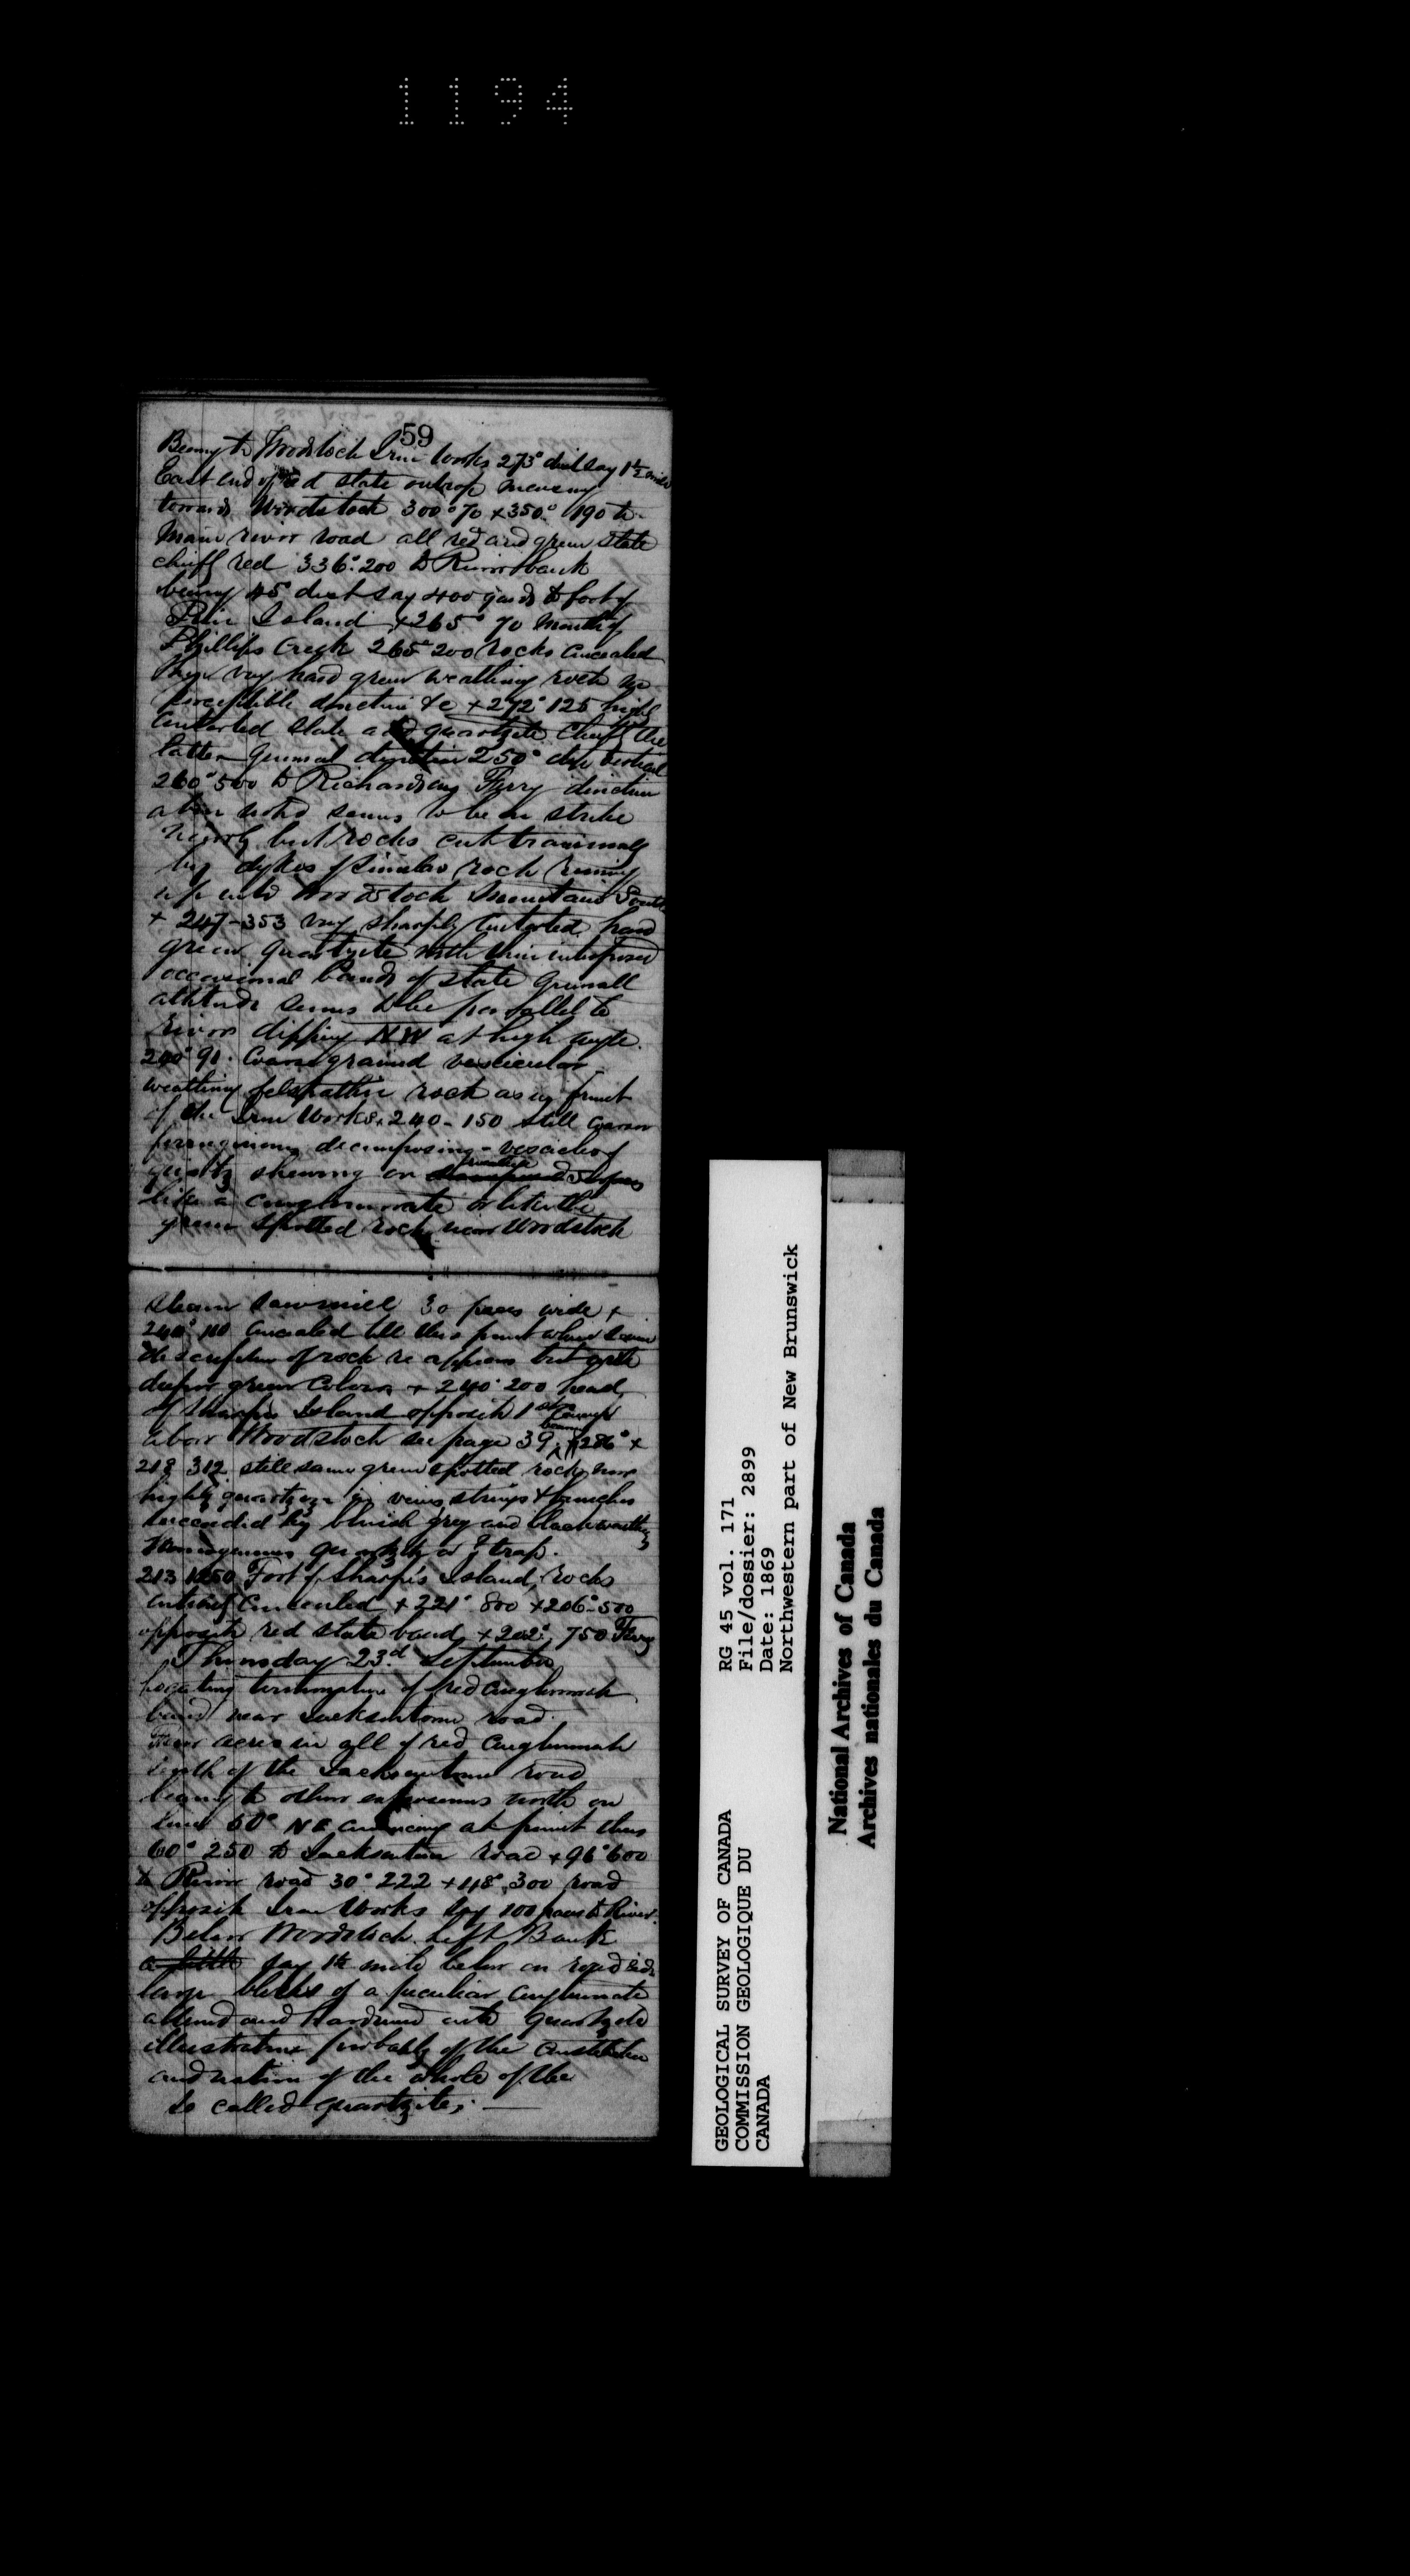 1194
59
Bearing to Woodstock Iron works 273° dist say 1½ mile
East end of red slate outcrop measuring
towards Woodstock 300° 70 + 350° 190 to
Main river road all red and green slate
chiefly red 336° 200 to River bank
bearing 45° dist say 400 yards to foot of
Island + 265° 70 mouth of
Phillips Creek 265 200 rocks concealed
then very hard green weathering rock no
perceptible direction &c + 272° 125 highly
contorted slate and quartzite chiefly the
latter general direction 250° dip vertical
260° 500 to Richardsons Ferry direction
above noted seems to be in strike
nearly but rocks cut transversely
by dykes of similar rock running
up into Woodstock Mountain South
+ 247-353 very sharply contorted hard
green quartzite with thin interposed
occasional bands of slate general
attitude seems to be parallel to
river dipping NW at high angle.
240° 91. Coarse grained vesicular
weathering felspathic rock as in front
of the Iron Works + 240-150 still coarser
ferruginous decomposing - vesicles of
quartz shewing on surfaces
like a conglomerate or like the
green spotted rock near Woodstock
steam sawmill 30 paces wide +
240° concealed till this point where same
description of rock re appears but with
deeper green colour + 240° 200 head
of Sharp's Island opposite 1st
above Woodstock see page 39 + 286° +
218 312 still same green spotted rock now
highly quartzose in veins strings & bunches
succeeded by bluish grey and black weathering
Homogeneous quartzite or ? trap.
213 1250 Foot of Sharp's Island, rocks
entirely concealed + 221° 800 + 206° 500
opposite red slate band + 202°, 750 Ferry
Thursday 23d September
Locating termination of red conglomerate
band near Jacksontown road.
Four acres in all of red conglomerate
south of the Jacksontown road
bearing to other exposures north on
line 60° NE commencing at point thus
60° 250 to Jacksontown road + 96° 600
to River road 30° 222 + 48° 300 road
opposite Iron Works say 100 paces to River.
Below Woodstock Left Bank
a little say 1½ mile below on road side
large blocks of a peculiar conglomerate
altered and hardened into quartzite
illustrative probably of the constitution
and nature of the whole of the
so called quartzites. —
GEOLOGICAL SURVEY OF CANADA
COMMISSION GEOLOGIQUE DU
CANADA
RG 45 vol. 171
File/dossier: 2899
Date: 1869
Northwestern part of New Brunswick
National Archives of Canada
Archives nationales du Canada